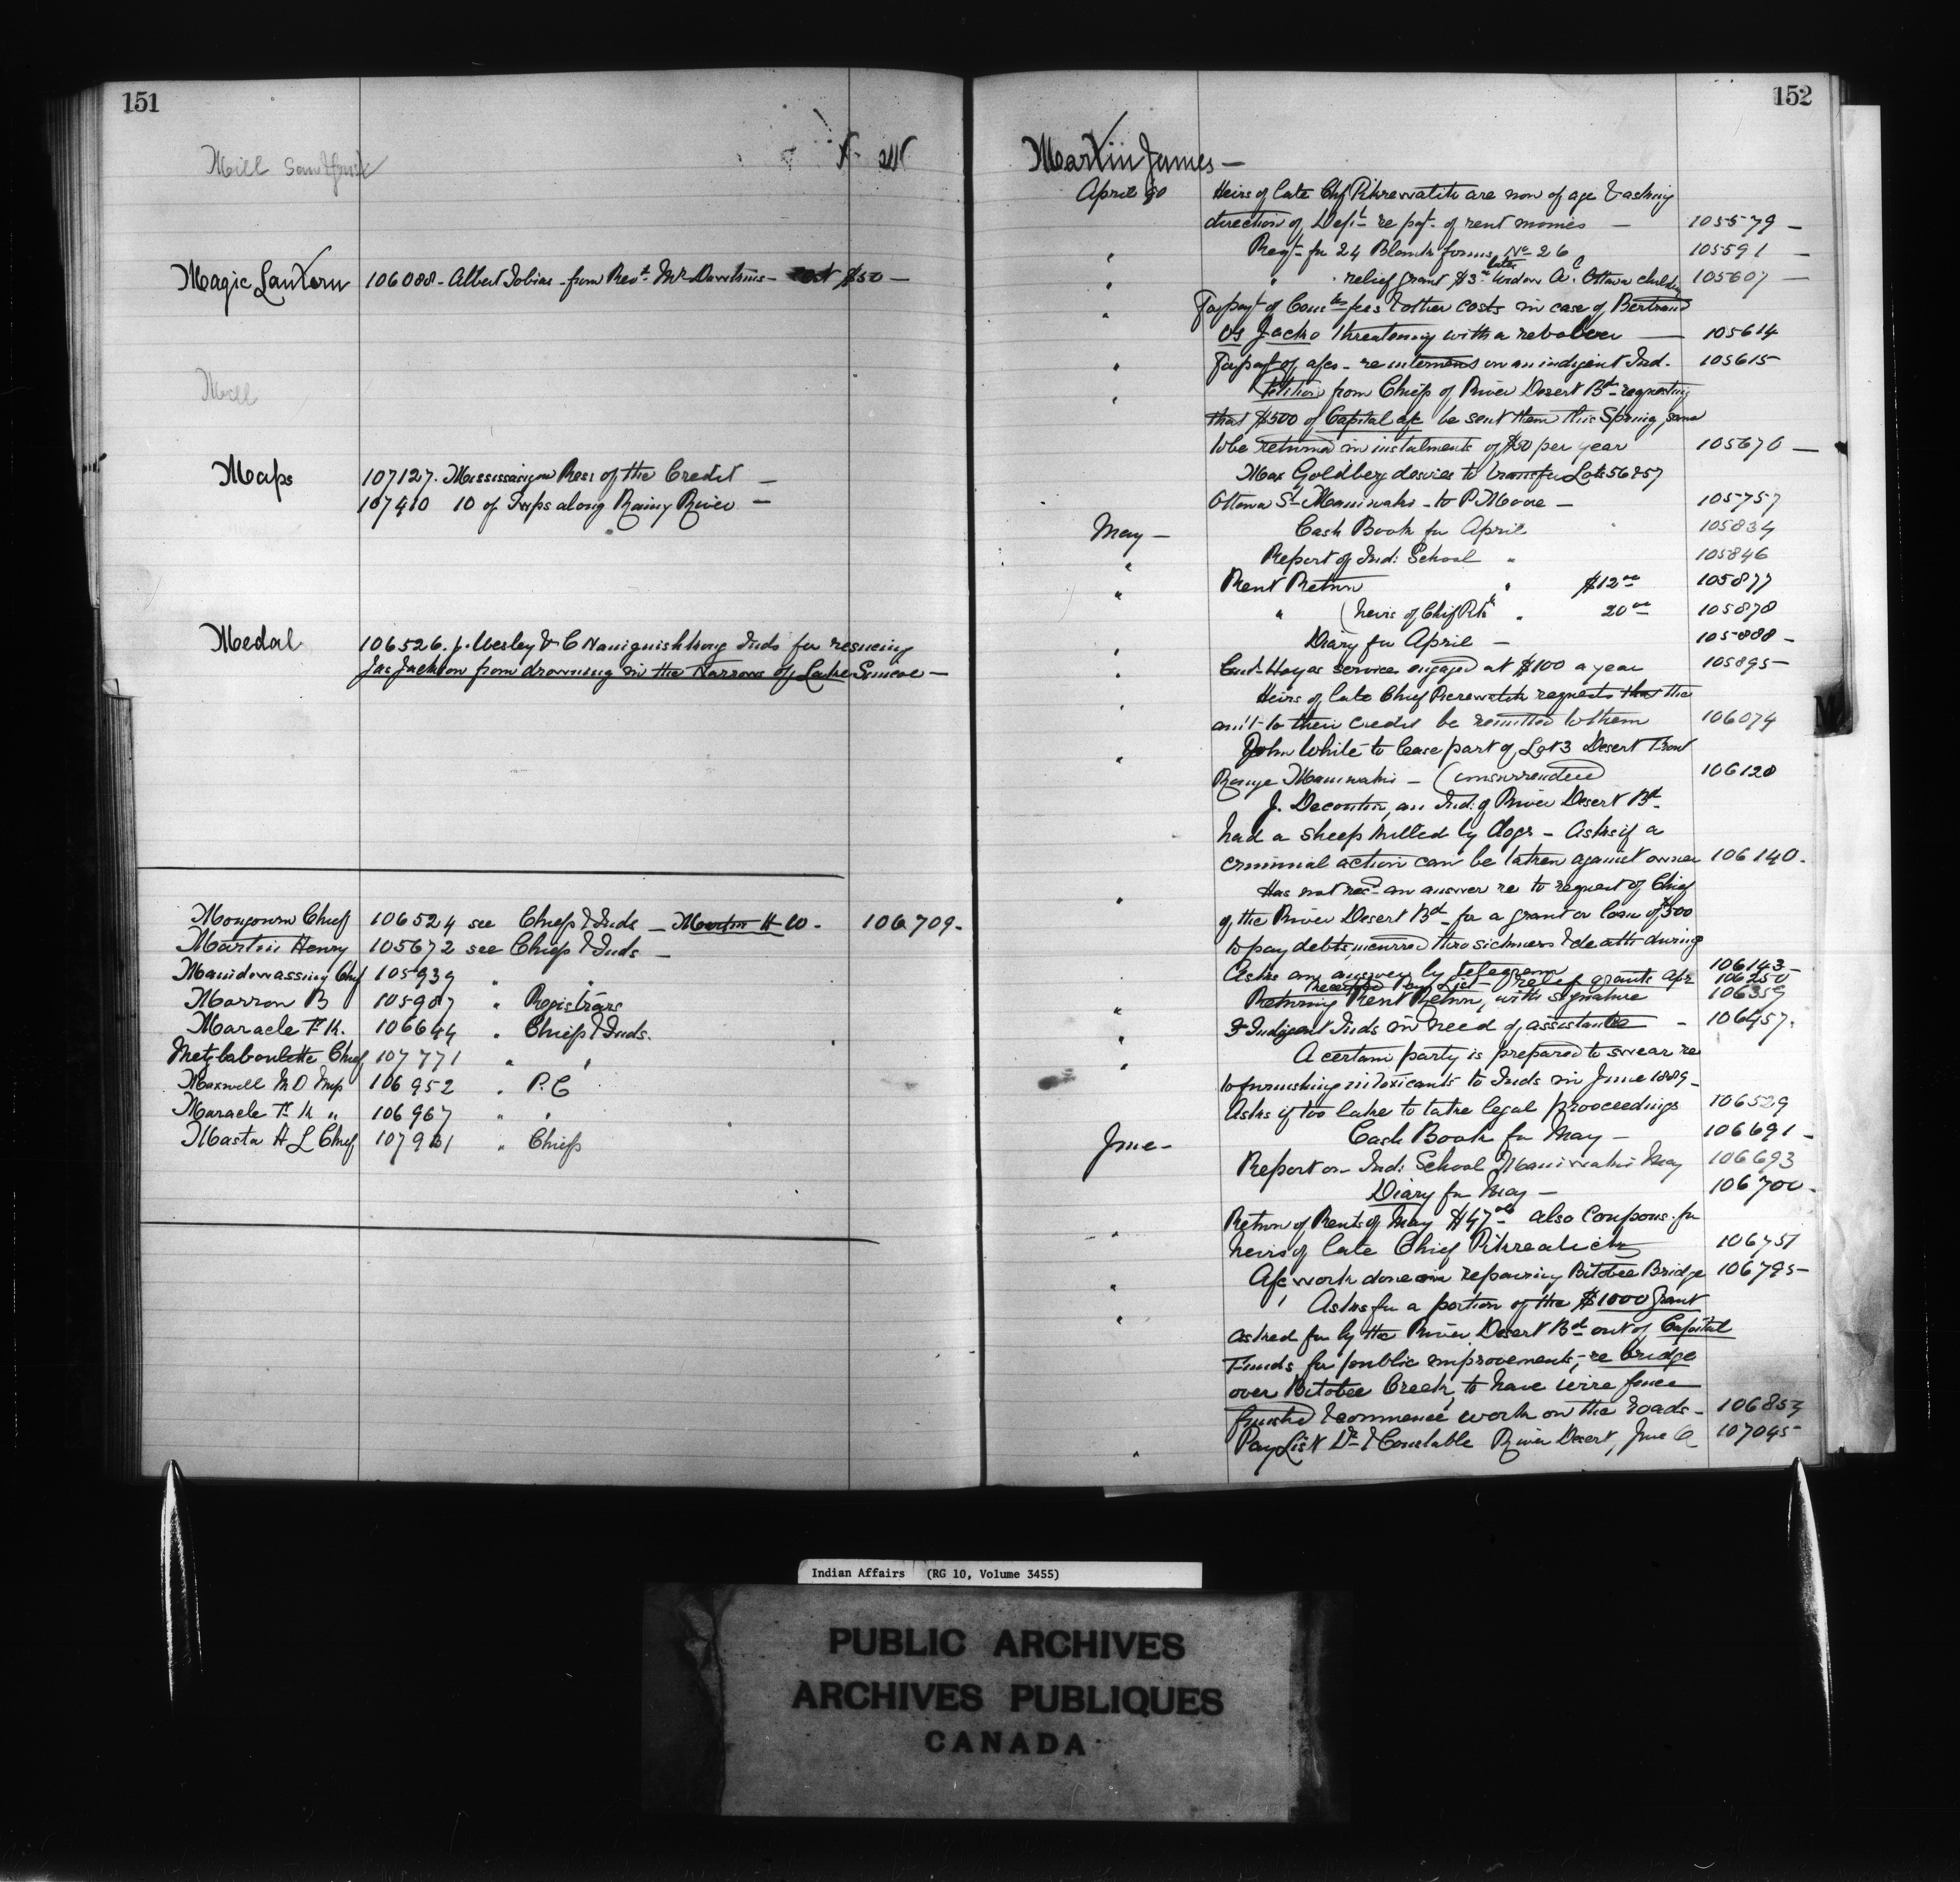 151
Mill
Magic Lantern 106088 - Albert Tobias - from Revd. Mr - cost $50 -
Mill
Maps 107127. Mississaugua Resr of the Credit -
107410 10 of Twps along Rainy River -
Medal 106526. J. Wesley & C Inds for rescuing
Jas Jackson from drowning in the Narrows of Lake Simcoe -
Chief 106524 see Chiefs & Inds - Martin H W. 106709.
Martin Henry 105672 see Chiefs & Inds -
Manidowassing Chf 105939 " "
Marron B 105907 " Registrars
Maracle T. K. 106644 " Chiefs & Inds.
Chief 107771 " "
Maxwell M D Imp 106952 " P. C
Maracle T. K " 106967 " "
Masta H L Chief 107931 " Chiefs
152
Martin James -
April 90 Heirs of late Chf are now of age & asking
direction of Dept. re pat. of rent monies - 105579 -
" Reqt. for 24 Blank forms, No 26 105591 -
" " relief grant $3 Widow 105607 -
" For payt of fees & other costs in case of Bertrand
vs Jacko threatening with a revolver - 105614
" For payt of a/cs - re interment on an indigent Ind. 105615
" Petition from Chiefs of River Desert Bd requesting
that $500 of Capital a/c be sent them this Spring, same
to be returned in instalments of $50 per year 105670 -
Max Goldberg desires to transfer Lots 56 & 57
Ottawa St. Maniwaki - to P. Moore - 105757
May - Cash Book for April 105834
" Report of Ind: School " 105846
" Rent Return " $12 00 105877
" (heirs of Chief " 20 00 105878
Diary for April - 105888 -
" service engaged at $100 a year 105895 -
" Heirs of late Chief requests that the
am't to their credit be remitted to them 106074
" John White to lease part of Lot 3 Desert Front
Range Maniwaki - (unsurrendered) 106128
J. Decontin, an Ind. of River Desert Bd.
had a sheep killed by dogs - Asks if a
criminal action can be taken against owner 106140.
" Has not recd an answer re to request of Chief
of the River Desert Bd. for a grant or loan of $500
to pay debts, incurred thro sickness & death during
Asks an answer by telegram 106143 -
Receipted Pay List - relief grants Apr 106250
" Returning Rent Return, with signature 106359
" 3 Indigent Inds in need of assistance - 106457.
" A certain party is prepared to swear re
to furnishing intoxicants to Inds in June 1889 -
Asks if too late to take legal proceedings 106529
June - Cash Book for May - 106691 -
Report on Ind: School Maniwaki May 106693
Diary for May - 106700 -
" Return of Rents of May $47 also Coupons for
heirs of late Chief 106751
" A/c work done in repairing Bitobee Bridge 106795 -
" Asks for a portion of the $1000 grant
asked for by the River Desert Bd out of Capital
Funds for public improvements, - re bridge
over Bitobee Creek, to have wire fence
finished & commence work on the roads - 106853
" Pay List Dr. & Constable River Desert, June 107095
Indian Affairs (RG 10, Volume 3455)
PUBLIC ARCHIVES
ARCHIVES PUBLIQUES
CANADA